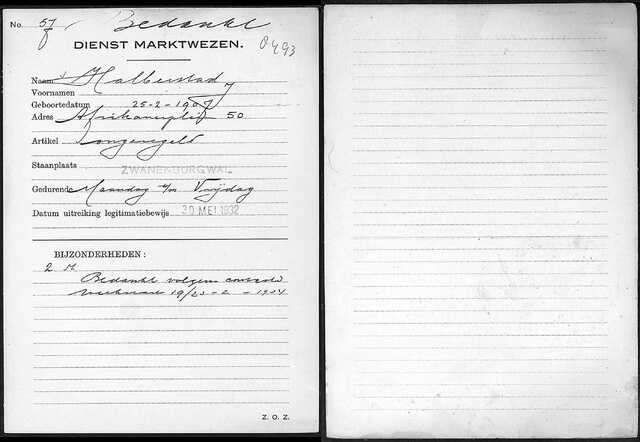 No. 57 Bedankt
DIENST MARKTWEZEN. 0493
Naam Halberstad
Voornamen
Geboortedatum 25-2-1907
Adres Afrikanerplein 50
Artikel ongeregeld
Staanplaats ZWANENBURGWAL
Gedurende Maandag t/m Vrijdag
Datum uitreiking legitimatiebewijs 30 MEI 1932
BIJZONDERHEDEN:
2
Bedankt volgens
19/25-2-1934
Z. O. Z.